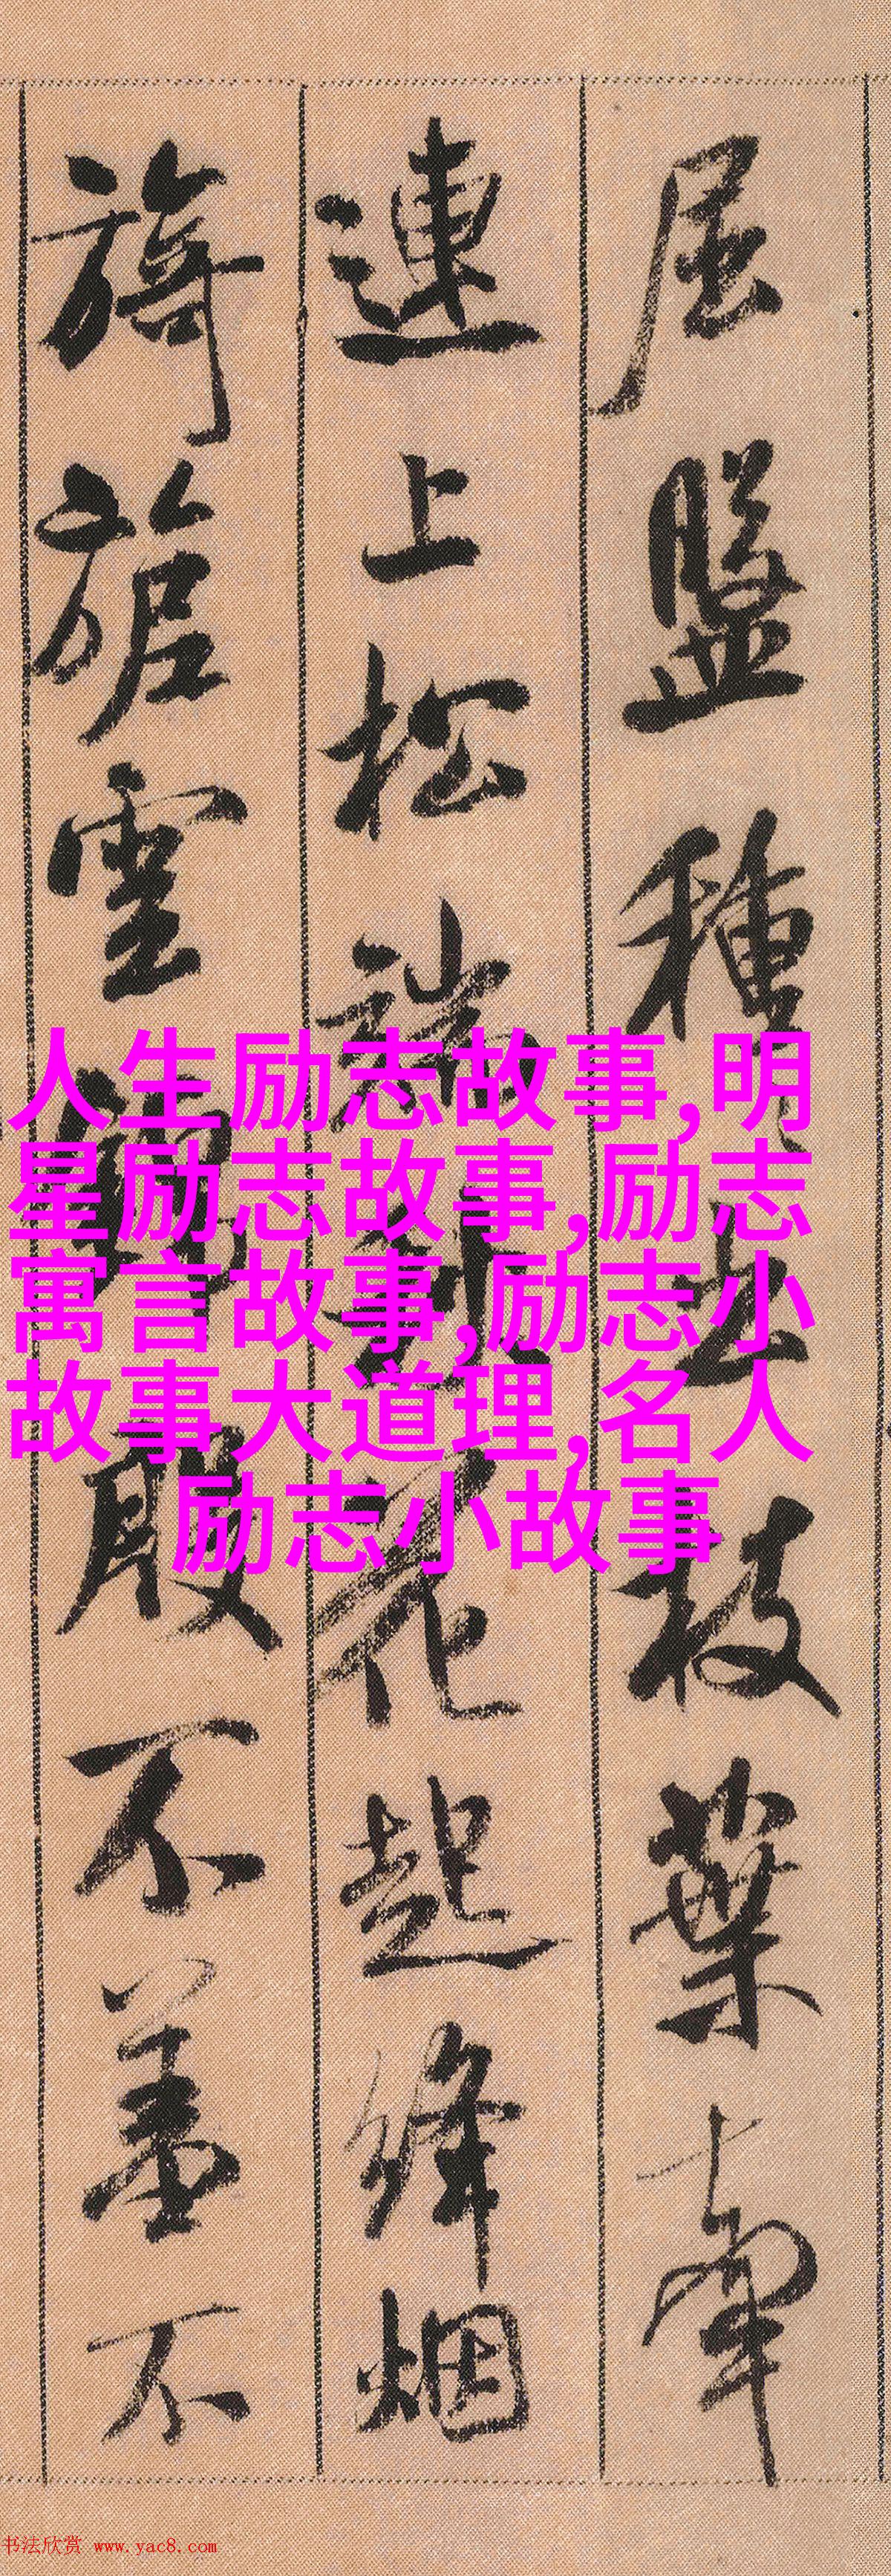 屈盤種出枝葉牽
連上松端秋花起絳烟
旖旎雲錦殷不羞不
人生励志故事,明
星励志故事,励志
寓言故事,励志小
故事大道理,名人
励志小故事
书法欣赏 www.yac8.com